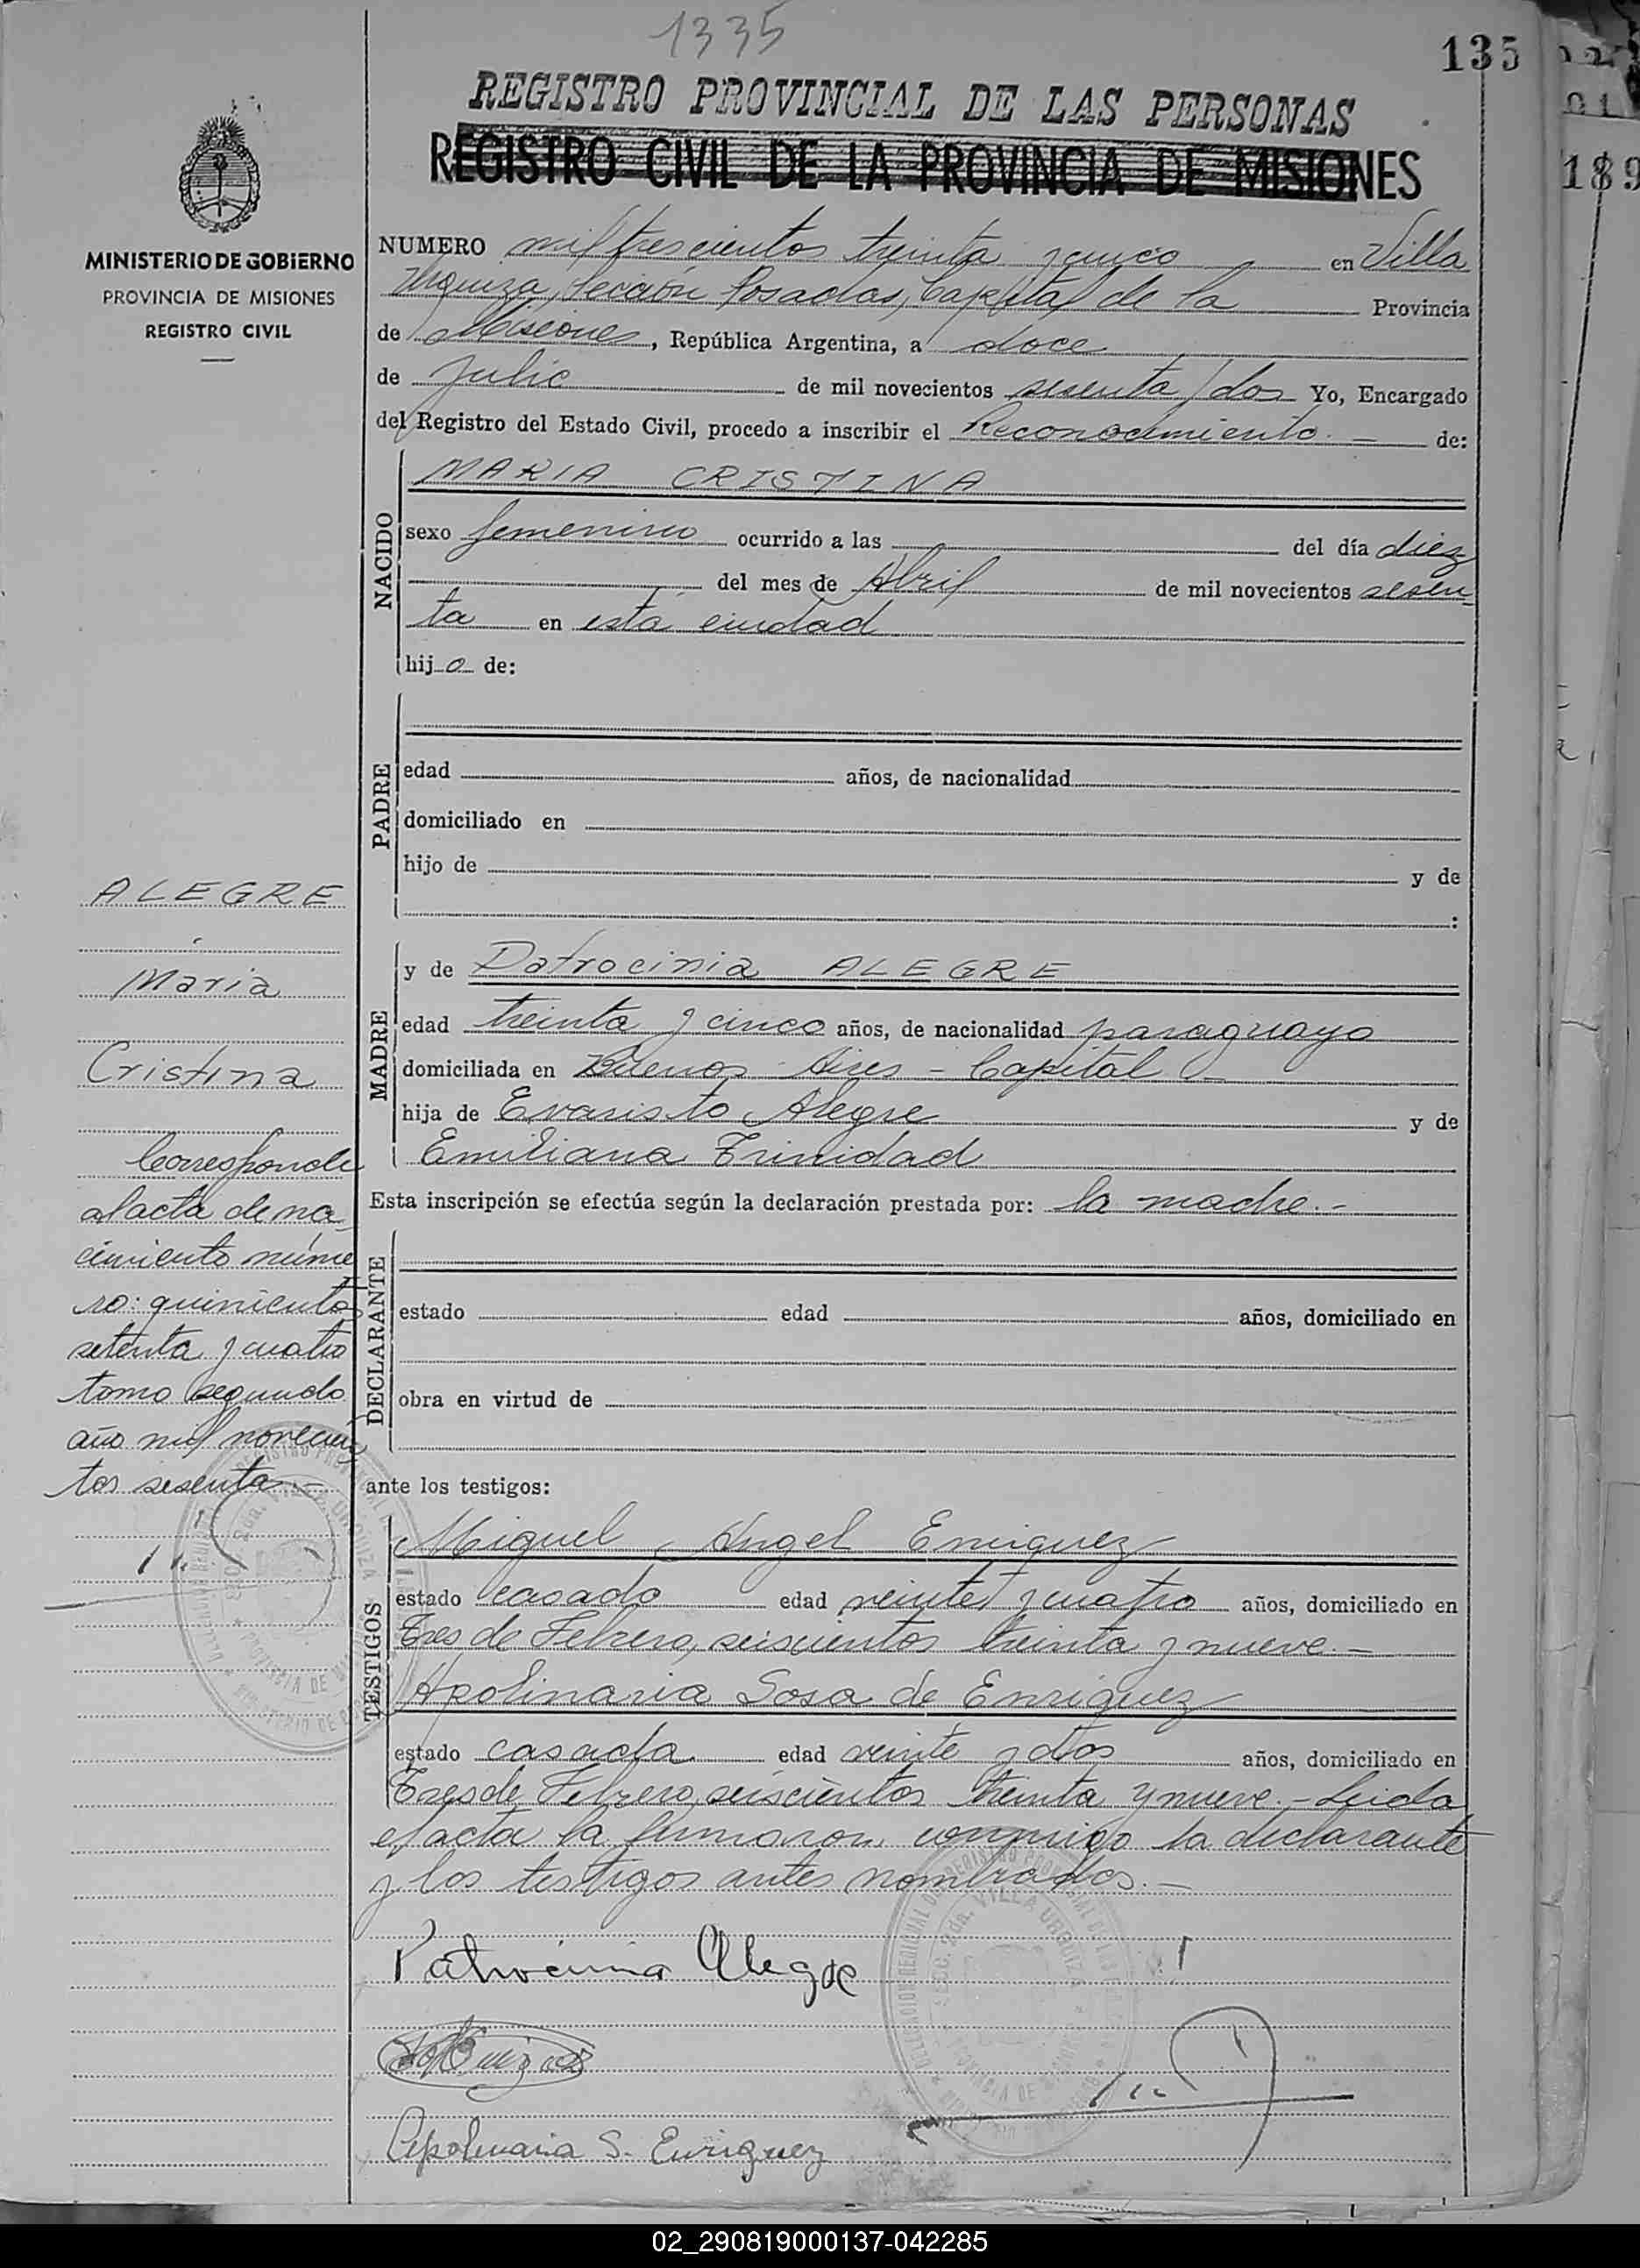 1335
135
REGISTRO PROVINCIAL DE LAS PERSONAS
REGISTRO CIVIL DE LA PROVINCIA DE MISIONES
189
MINISTERIO DE GOBIERNO
PROVINCIA DE MISIONES
REGISTRO CIVIL
NUMERO mil trescientos treinta y cinco en Villa
Urquiza, Sección Posadas, Capital de la Provincia
de Misiones, República Argentina, a doce
de Julio de mil novecientos sesenta y dos Yo, Encargado
del Registro del Estado Civil, procedo a inscribir el Reconocimiento.- de:
NACIDO
MARIA CRISTINA
sexo femenino ocurrido a las del día diez
del mes de Abril de mil novecientos sesen-
ta en esta ciudad
hija de:
PADRE
edad años, de nacionalidad
domiciliado en
hijo de y de
:
MADRE
y de Patrocinia ALEGRE
edad treinta y cinco años, de nacionalidad paraguaya
domiciliada en Buenos Aires - Capital -
hija de Evaristo Alegre y de
Emiliana Trinidad
Esta inscripción se efectúa según la declaración prestada por: la madre.-
DECLARANTE
estado edad años, domiciliado en
obra en virtud de
ante los testigos:
TESTIGOS
Miguel Angel Enriquez
estado casado edad veinte y cuatro años, domiciliado en
Tres de Febrero, seiscientos treinta y nueve.-
Apolinaria Sosa de Enriquez
estado casada edad veinte y dos años, domiciliado en
Tres de Febrero, seiscientos treinta y nueve.- Leida
el acta la firmaron conmigo la declarante
y los testigos antes nombrados.-
Patrocinia Alegre
Apolinaria S. Enriquez
ALEGRE
Maria
Cristina
Corresponde
al acta de na-
cimiento núme
ro: quinientos
setenta y cuatro
tomo segundo
año mil novecien
tos sesenta.-
02_290819000137-042285